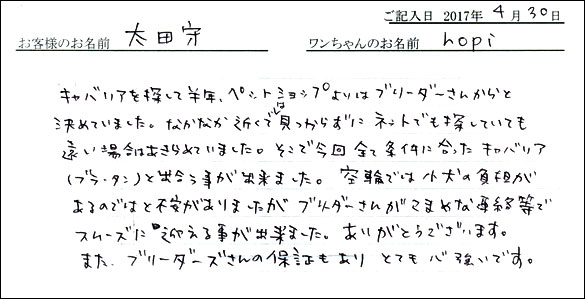 ご記入日 2017年 4月 30日
お客様のお名前 太田守 ワンちゃんのお名前 hopi
キャバリアを探して半年、ペットショップよりはブリーダーさんからと
決めていました。なかなか近くでは見つからずにネットでも探していても
遠い場合はあきらめていました。そこで今回全て条件に合ったキャバリア
(ブラ・タン)と出合う事が出来ました。空輸では小犬の負担が
あるのではと不安がありましたがブリーダーさんがこまめな連絡等で
スムーズに迎える事が出来ました。ありがとうございます。
また、ブリーダーズさんの保証もあり とても心強いです。